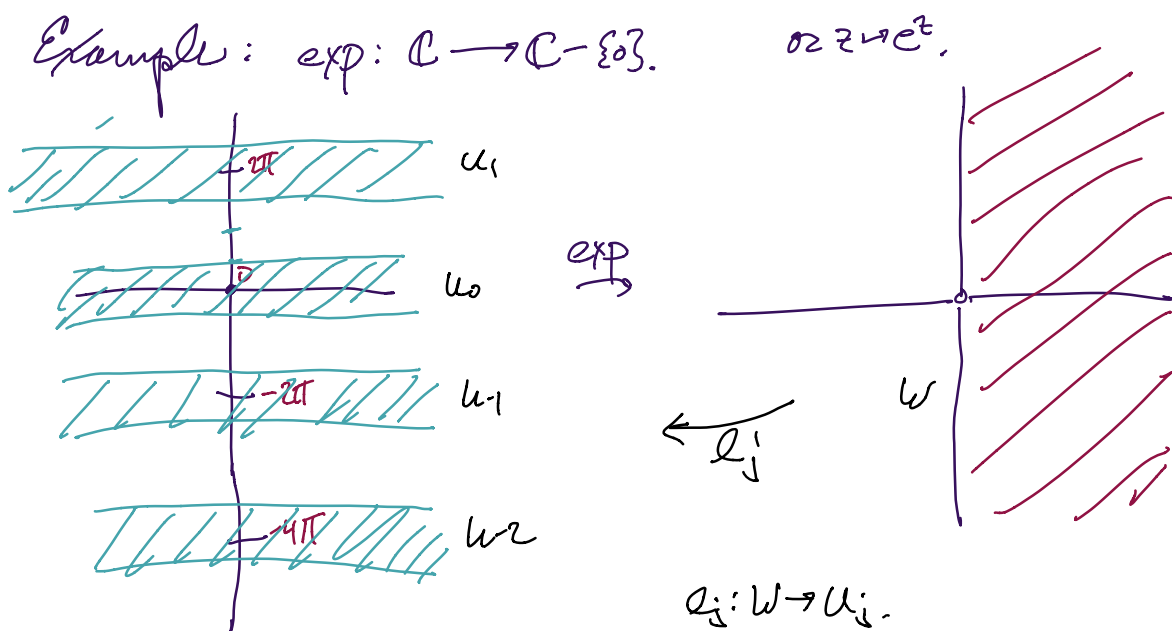 Example: exp: ℂ → ℂ - {0}. or z ↦ e^z.
2π u₁
0 u₀
exp →
-2π u₋₁
W
l_j
-4π u₋₂
l_j: W → U_j.